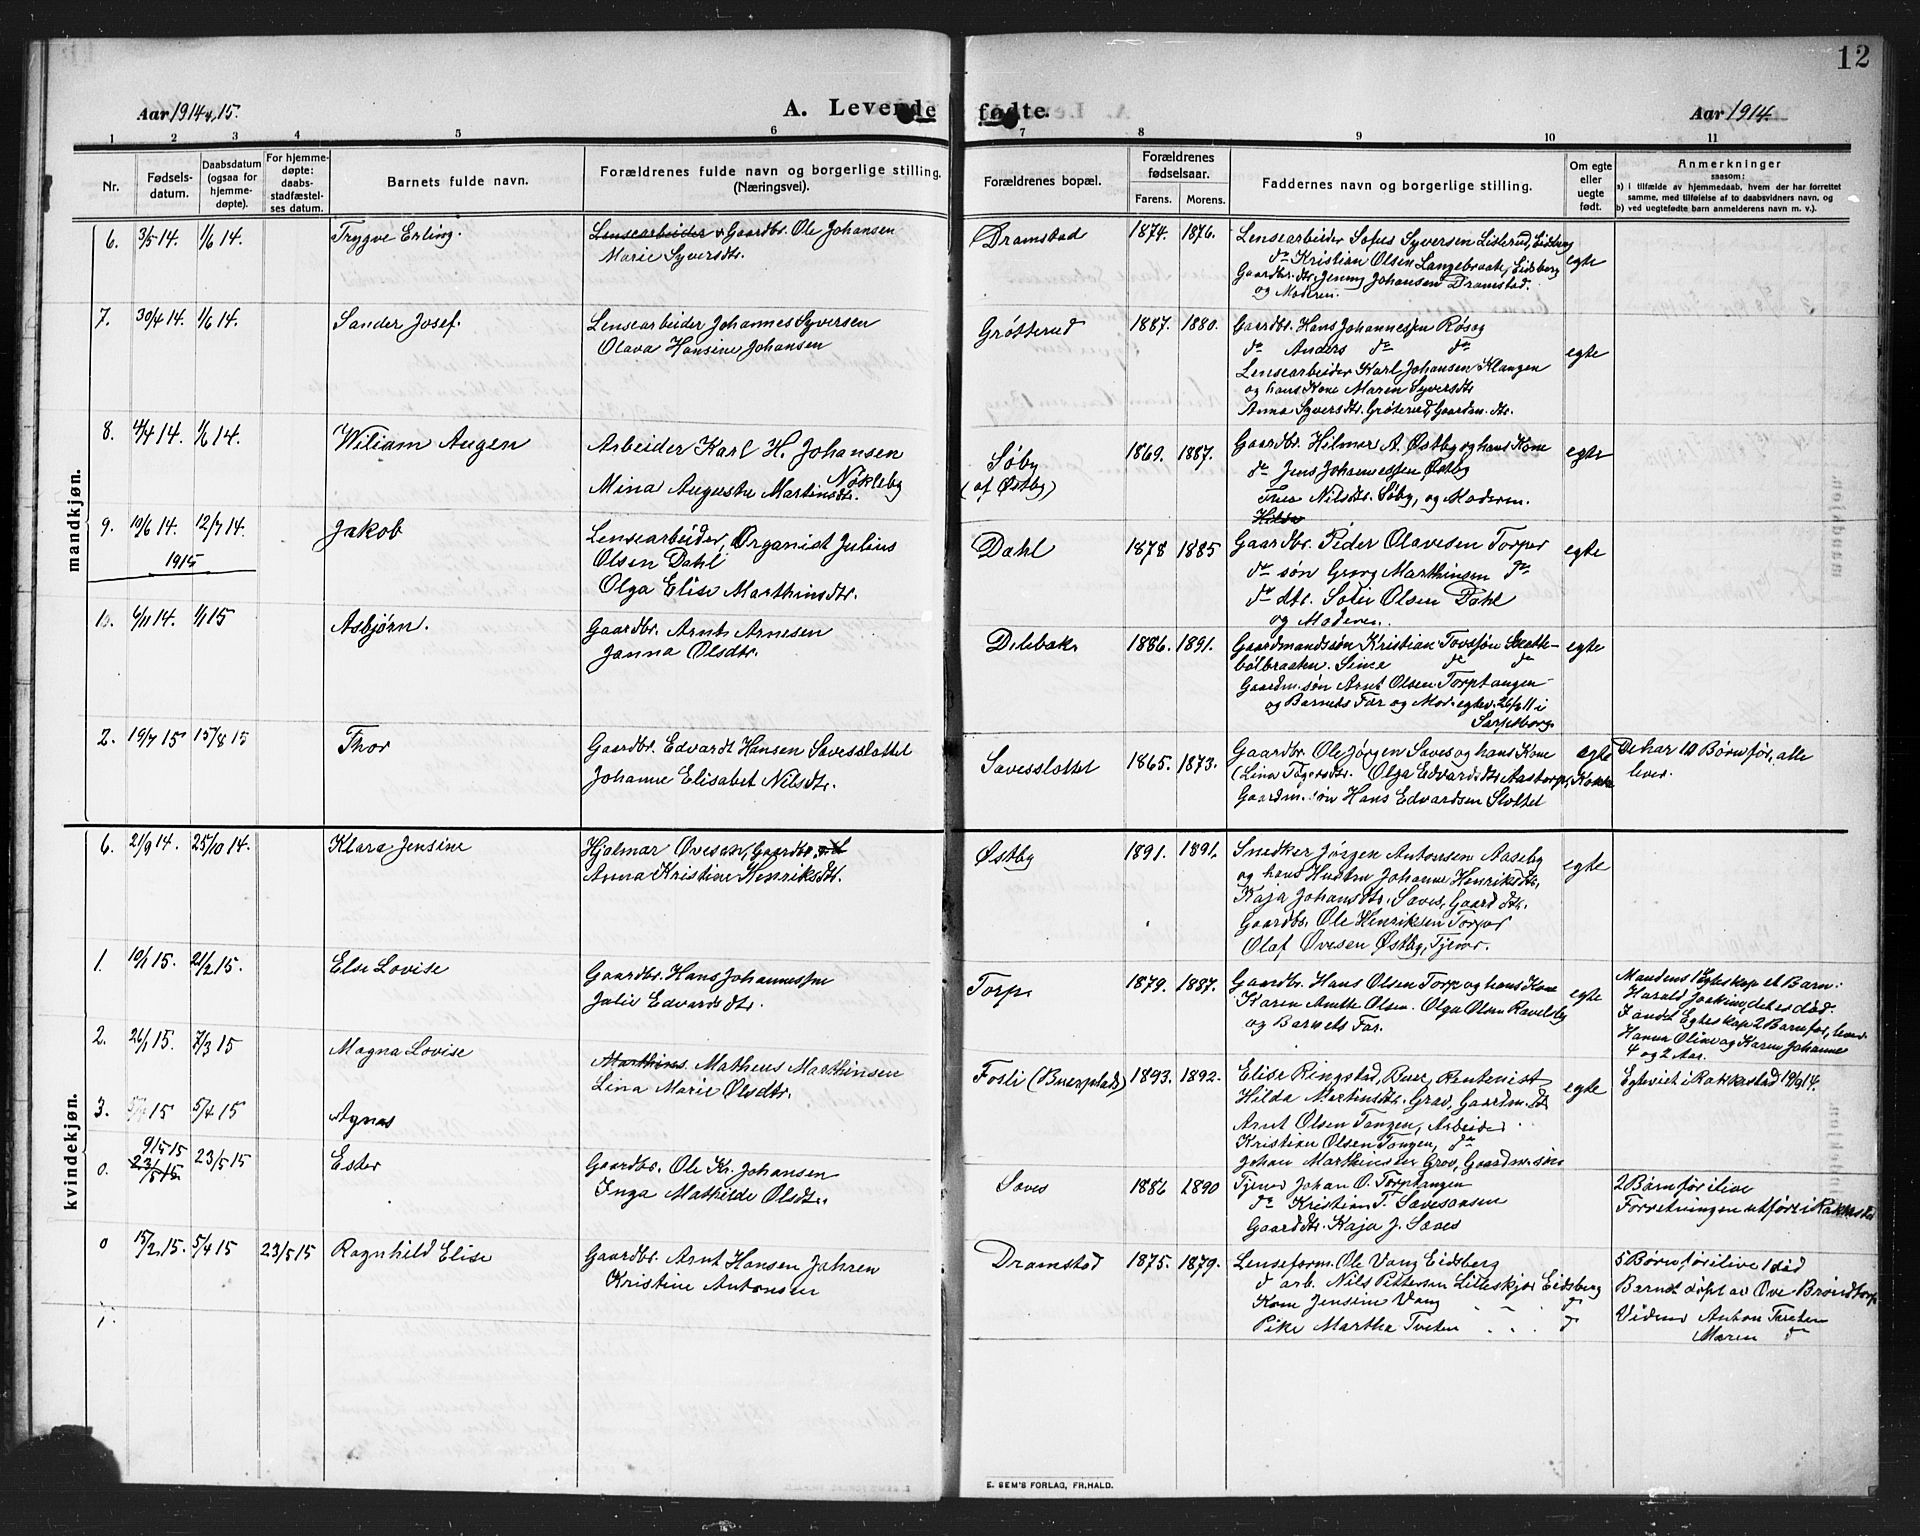 12
Aar 1914 & 15.
A. Levende fødte.
Aar 1914.
1 2 3 4 5 6 7 8 9 10 11
Nr.
Fødsels-
datum.
Daabsdatum
(ogsaa for
hjemme-
døpte).
For hjemme-
døpte:
daabs-
stadfæstel-
ses datum.
Barnets fulde navn.
Forældrenes fulde navn og borgerlige stilling.
(Næringsvei).
Forældrenes bopæl.
Forældrenes
fødselsaar.
Farens. Morens.
Faddernes navn og borgerlige stilling.
Om egte
eller
uegte
født.
Anmerkninger
saasom:
a) i tilfælde av hjemmedaab, hvem der har forrettet
samme, med tilføielse af to daabsvidners navn, og
b) ved uegtefødte barn anmelderens navn m. v.).
mandkjøn.
6. 3/5 14. 1/6 14. Trygve Erling.
Lensearbeider & Gaardbr. Ole Johansen
Marie Syversdtr.
Dramstad 1874. 1876.
Lensearbeider Sofus Syversen Listerud, Eidsberg
do Kristian Olsen Langebraate, Eidsberg
Gaardbr. dtr. Jenny Johansen Dramstad.
og Moderen.
egte
7. 30/4 14. 1/6 14. Sander Josef.
Lensearbeider Johannes Syversen
Olava Hansine Johansen
Grøtterud 1887. 1880.
Gaardbr. Hans Johannessen Røsag
do Anders do do
Lensearbeider Karl Johansen Klangen
og hans Kone Maren Syversdtr
Anna Syversdtr. Grøterud, Gaardm. dtr.
egte
8. 4/4 14. 1/6 14. Wiliam Augen
Arbeider Karl H. Johansen
Nøkleby
Mina Auguste Martinsdtr.
Søby
(af Østby)
1869. 1887.
Gaardbr. Hilmar A. Østby og hans Kone
do Jens Johannessen Østby
Thea Nilsdtr. Søby, og Moderen.
Hilda
egte
9. 10/6 14. 12/7 14. Jakob
Lensearbeider, Organist Julius
Olsen Dahl
Olga Elise Marthinsdtr.
Dahl 1878 1885
Gaardbr. Peder Olavesen Torper
do søn Georg Marthinsen do
do dtr. Sofie Olsen Dahl
og Moderen.
egte
1915
10. 6/11 14. 1/1 15 Asbjørn.
Gaardbr. Arnt Arnesen
Janna Olsdtr.
Delebak. 1886. 1891.
Gaardmandssøn Kristian Tovssøn Skatte-
bølbraaten. Sina do do
Gaardm. søn Arnt Olsen Torptangen
og Barnets Far og Mor. egtev. 26/6 11 i
Sarpsborg
egte
2. 19/7 15 15/8 15 Thor
Gaardbr. Edvardt Hansen Savesslottet
Johanne Elisabet Nilsdtr.
Savesslottet 1865. 1873.
Gaardbr. Ole Jørgen Saves og hans Kone
(Lina Tøgersdtr. Olga Edvardsdtr Aastorp, Kokke
Gaardm. søn Hans Edvardsen Slottet
egte
De har 10 Børn før, alle
lever.
kvindekjøn.
6. 21/9 14. 25/10 14. Klara Jensine
Hjalmar Ovesen, Gaardbr.
Anna Kristine Henriksdtr.
Østby 1891. 1891.
Snedker Jørgen Antonsen Aaseby
og hans Hustru Johanne Henriksdtr,
Kaja Johansdtr. Saves, Gaard dtr.
Gaardbr. Ole Henriksen Torper
Olaf Ovesen Østby, Tjener.
egte
1. 10/1 15. 21/2 15. Else Lovise
Gaardbr. Hans Johannessen
Julie Edvardsdtr.
Torp. 1879. 1887.
Gaardbr. Hans Olsen Torp og hans Kone
Karen Anette Olsen. Olga Olsen Ravelsby
og Barnets Far.
egte
Mandens 1 Egteskap et Barn:
Harald Joakim, det er død.
I andet Egteskap 2 Barn før, lever
Hanna Oline og Karen Johanne
4 og 2 Aar.
2. 26/1 15. 7/3 15 Magna Lovise
Marthins Matheus Marthinsen
Lina Marie Olsdtr.
Fosli (Buerplads) 1893. 1892.
Elise Ringstad, Buer, Rentenist
Hilda Martinsdtr. Grav, Gaardm. dt
Arnt Olsen Tangen, Arbeider
Kristian Olsen Tangen, do
Johan Marthinsen Grav, Gaardm. søn
egte
Egteviet i Rakkestad 19/9 14.
3. 15 5/4 15 Agnes
0. 9/5 15 23/5 15 23/5 15 Ester
Gaardbr. Ole Kr. Johansen
Inga Mathilde Olsdtr.
Saves 1886 1890
Tjener Johan O. Torptangen
do Kristian T. Savesaasen
Gaarddtr. Kaja J. Saves
2 Børn før ilive
Forretningen utført i Rakkestad
0 15/2 15. 5/4 15 23/5 15 Ragnhild Elise
Gaardbr. Arnt Hansen Jahren
Kristine Antonsen
Dramstad 1875. 1879.
Lenseform. Ole Vang Eidsberg
d arb. Nils Pettersen Lilleskjør Eidsberg
Kone Jensine Vang " " d
Pike Martha Tveten " " d
5 Børn før ilive 1 død
Berndt døpt av Ove Brøndtorp
Vidner Anton Tveten
Maren do
E. SEM'S FORLAG, FR.HALD.